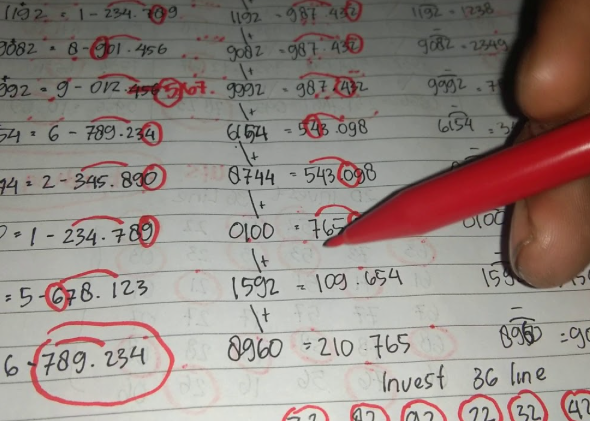 1192 = 1-234.789 1192 = 987.432 1192 = 1238
9082 = 8-901.456 9082 = 987.432 9082 = 2349
992 = 9-012. 567. 9992 = 987.432 9992
54 = 6-789.234 6154 = 543.098 6154
44 = 2-345.890 8744 = 543.098
0 = 1-234.789 0100 = 765 0100
= 5-678.123 1592 = 109.654 159
6-789.234 8960 = 210.765 8960 = 90
Invest 36 line
22 32 42